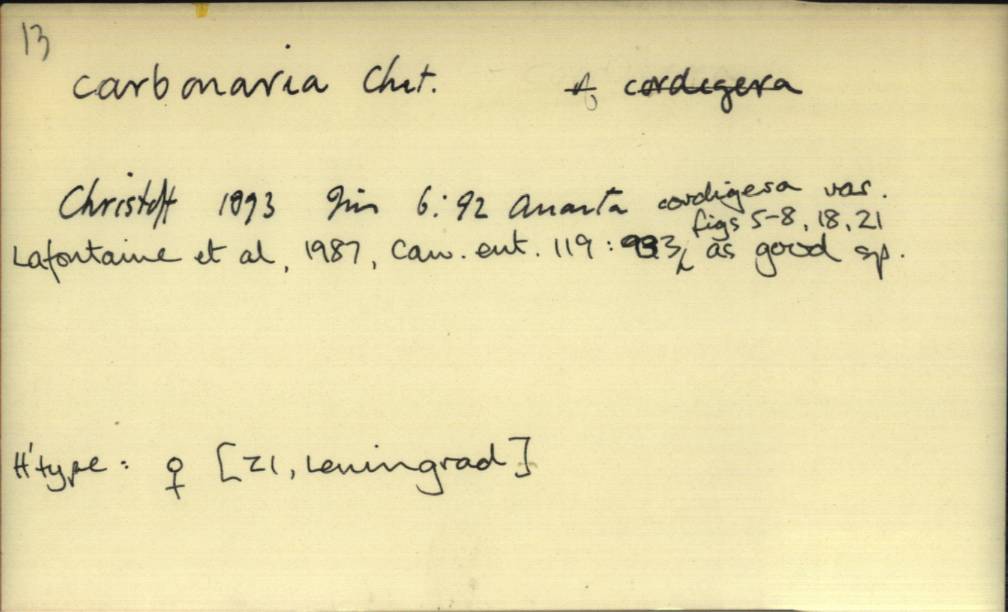 13
carbonaria Chst. cordigera
Christoff 1893 Iris 6:92 Anarta cordigera var.
figs 5-8, 18, 21
Lafontaine et al, 1987, Can. ent. 119: 933, as good sp.
H'type: ♀ [ZI, Leningrad]